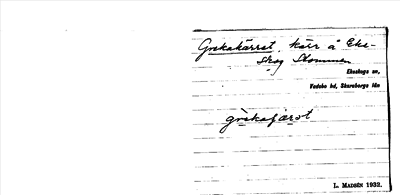 Grekakärret, kärr å Eke-
skog Stommen
Ekeskogs sn,
Vadsbo hd, Skaraborgs län
grèkaɟærət
L. MADSÉN 1932.